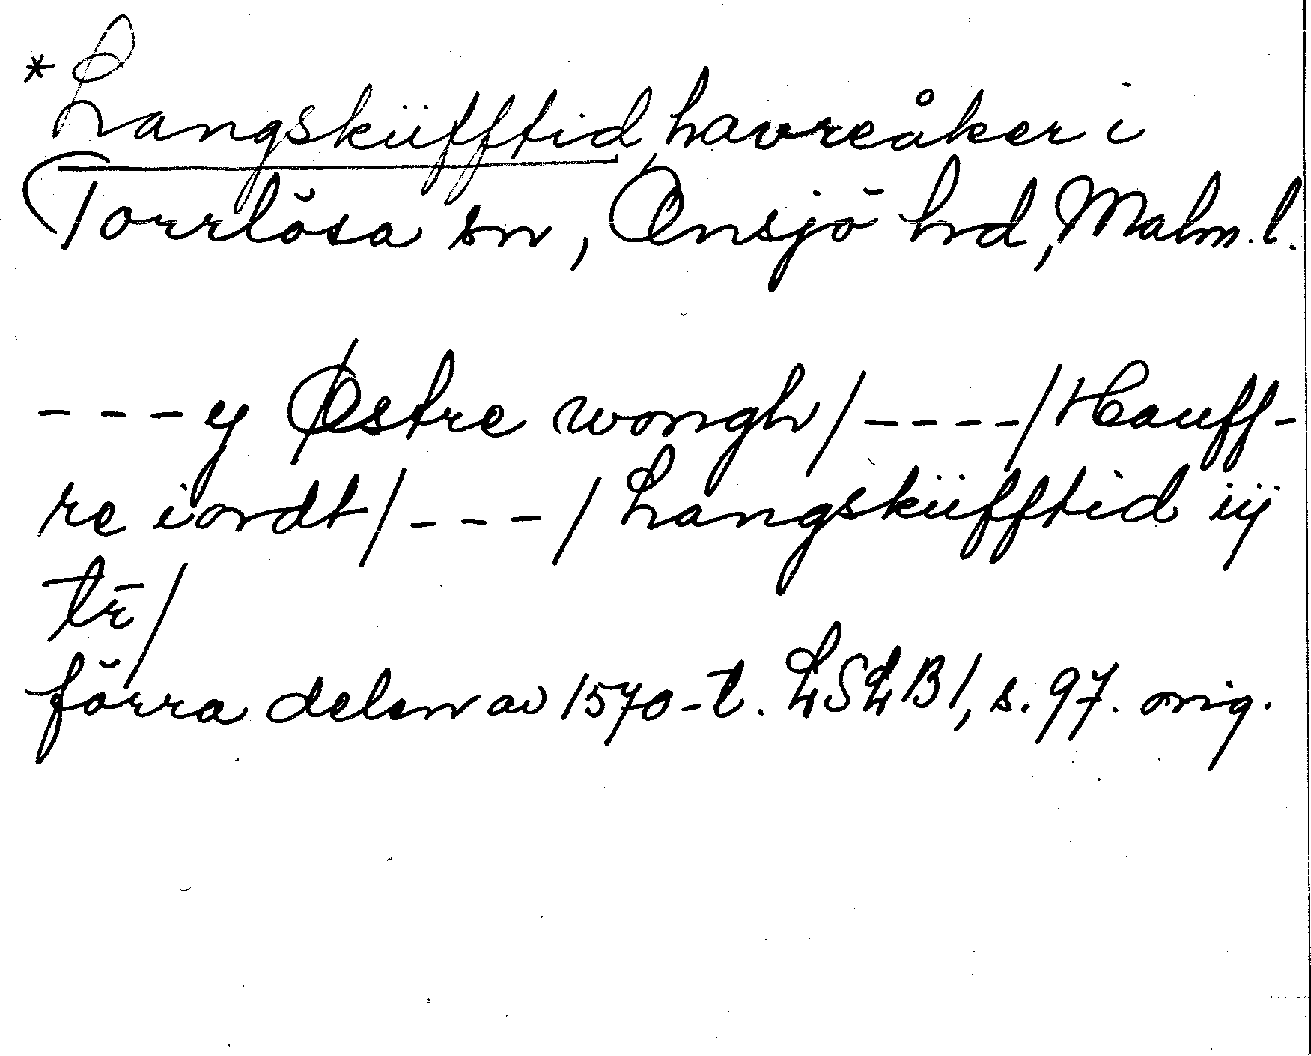 *Langsküfftid, havreåker i
Torrlösa sn, Onsjö hd, Malm. l.
---y Østre wongh/----/Hauff-
re iordt/---/Langsküfftid iÿ
tr̄/
förra delen av 1570-t. LSLB1, s. 97. orig.